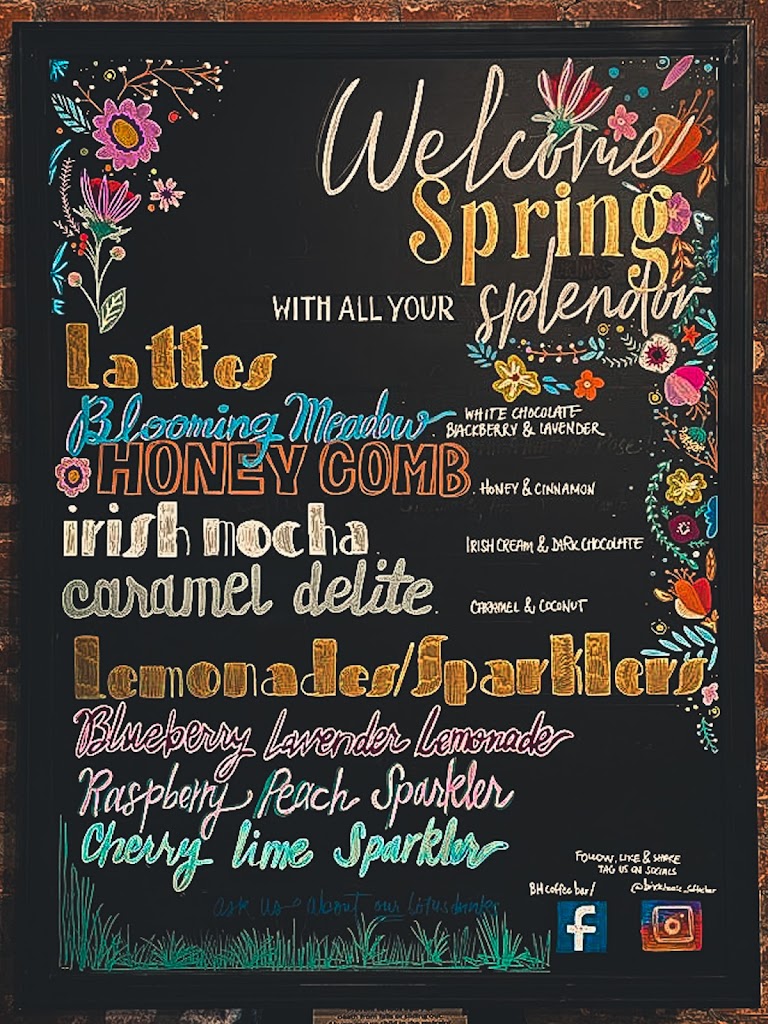 Welcome
Spring
WITH ALL YOUR splendor
Lattes
Blooming Meadow WHITE CHOCOLATE
BLACKBERRY & LAVENDER
HONEY COMB HONEY & CINNAMON
irish mocha IRISH CREAM & DARK CHOCOLATE
caramel delite CARAMEL & COCONUT
Lemonades/Sparklers
Blueberry Lavender Lemonade
Raspberry Peach Sparkler
Cherry lime Sparkler
FOLLOW, LIKE & SHARE
TAG US ON SOCIALS
BHcoffeebar/
ask us about our lotus drinks
f